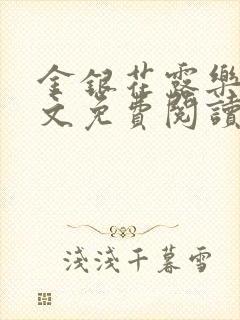 金銀花露樂
文免費閱讀
淺淺千暮雪